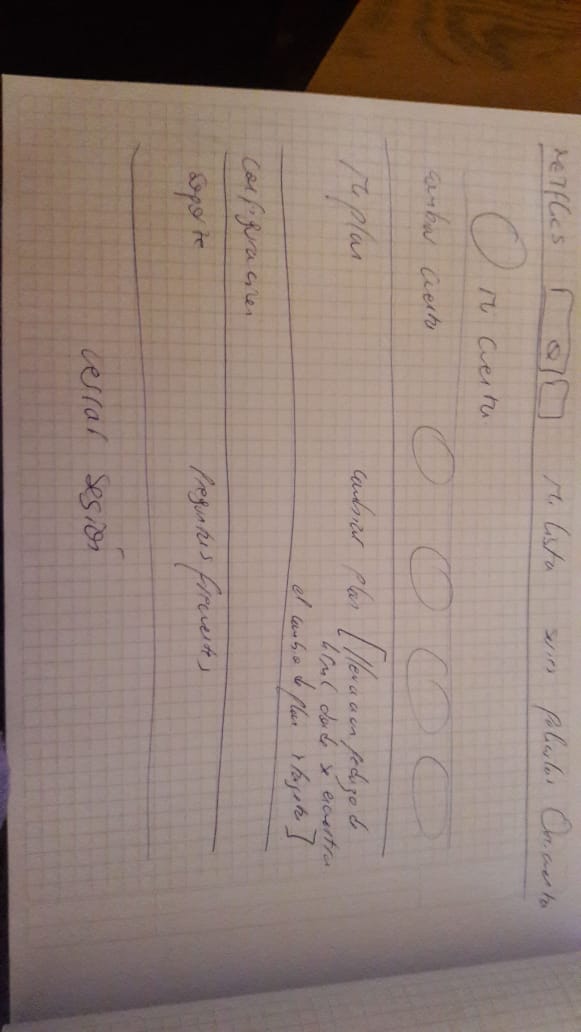 METFLICS Mi lista series peliculas Mi cuenta
Mi cuenta
cambiar cuenta
Mi plan cambiar plan [lleva a un pedazo de
html donde se encuentra
el cambio de plan y tarjeta]
configuraciones
soporte Preguntas frecuentes
cerrar sesión